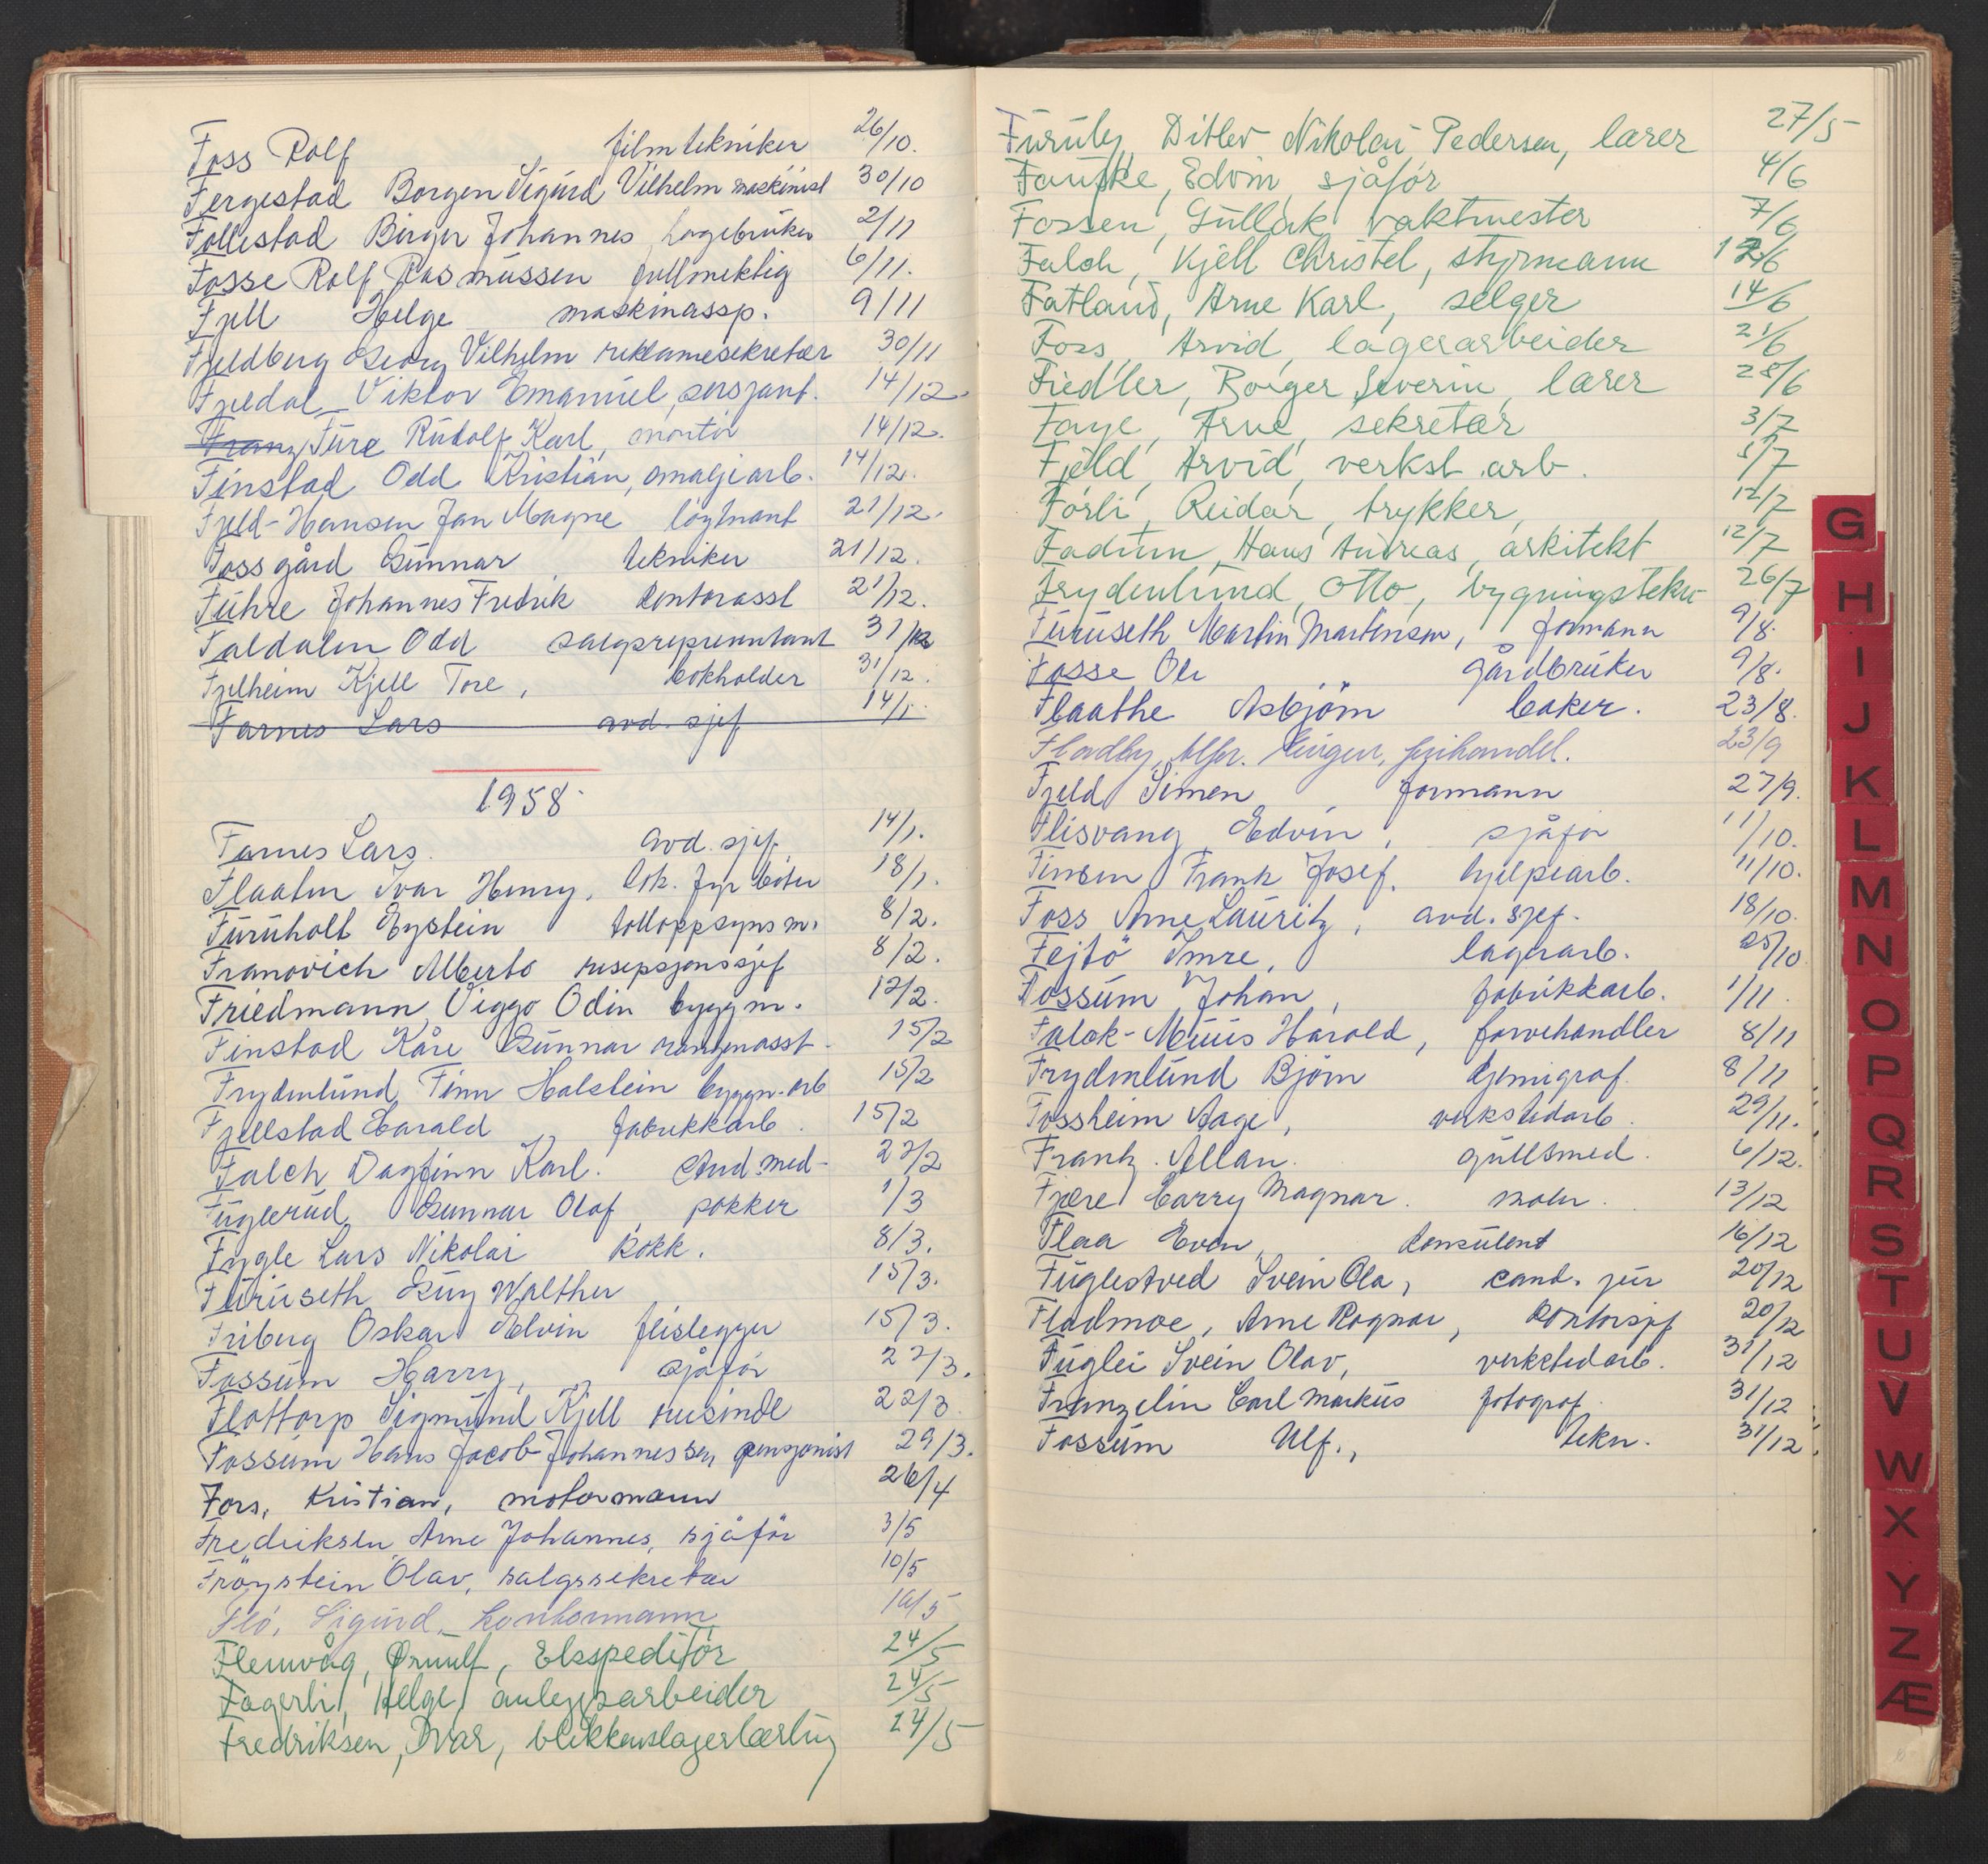 Foss Rolf filmtekniker 26/10.
Fergestad Borgen Sigurd Vilhelm maskinist 30/10
Follestad Birger Johannes hagebruker 2/11
Fosse Rolf Rasmussen fullmektig 6/11.
Fjell Helge maskinassp. 9/11
Fjeldberg Georg Vilhelm reklamesekretær 30/11
Fjedal Viktor Emanuel, sersjant. 14/12.
Franz, Ture Rudolf Karl, montör 14/12.
Finstad Odd Kristian, emaljearb. 14/12.
Fjeld-Hansen Jan Magne löytnant 21/12.
Fossgård Gunnar tekniker 21/12.
Führe Johannes Fredrik kontorasst 21/12.
Faldalen Odd salgsrepresentant 31/12
Fjelheim Kjell Tore, bokholder 31/12.
Farnes Lars avd. sjef 14/1.
1958
Farnes Lars. avd. sjef. 14/1.
Flaaten Ivar Henry, lok. fyrböter 18/1.
Furuholt Eystein tolloppsynsm. 8/2.
Franovich Alberto resepsjonssjef 8/2.
Friedmann Viggo Odin byggm. 12/2.
Finstad Kåre Gunnar 15/2
Frydenlund, Finn Halstein byggn. arb 15/2
Fjellstad Harald, fabrikkarb. 15/2
Falch Dagfinn Karl. stud. med- 22/2
Fuglerud, Gunnar Olaf, pakker 1/3
Fygle Lars Nikolai kokk. 8/3.
Furuseth Guy Walther 15/3.
Friberg Oskar Edvin flislegger 15/3.
Fossum Harry, sjåför 22/3.
Flottorp Sigmund Kjell reisende 22/3
Fossum Hans Jacob Johannessen, pensjonist 29/3.
Fors, Kristian, motormann 26/4
Fredriksen Arne Johannes, sjåför 3/5
Fröystein Olav, salgssekretær 10/5
Flö, Sigurd, kontormann 10/5
Flemvåg, Ørnulf, Ekspeditör 24/5
Fagerli, Helge, anleggsarbeider 24/5
Fredriksen, Ivar, blikkenslagerlærling 24/5
Furuly, Ditlev Nikolai Pedersen, lærer 27/5
Fauske, Edvin, sjåför 4/6
Fossen, Gullak, vaktmester 7/6
Falch, Kjell Christel, styrmann 12/6
Fatland, Arne Karl, selger 14/6
Foss, Arvid, lagerarbeider 21/6
Fiedler, Roger Severin, lærer 28/6
Faye, Arne, sekretær 3/7
Fjeld, Arvid, verkst. arb. 5/7
Förli, Reidar, trykker, 12/7
Fadum, Hans Andreas, arkitekt 12/7
Frydenlund, Otto, bygningstekn 26/7
Furuseth Martin Martinsen, formann 9/8.
Fosse Ole gårdbruker 9/8.
Flaathe Asbjörn baker. 23/8.
Fladby, Alfr. 23/9
Fjeld Simen formann 27/9.
Flisvang Edvin, sjåför 11/10.
Finsen Frank Josef. hjelpearb. 11/10.
Foss Arne Lauritz, avd. sjef. 18/10.
Fejtö Imre, lagerarb. 25/10
Fossum Johan, fabrikkarb. 1/11.
Falck-Muus Harald, farvehandler 8/11
Frydenlund Björn kjemigraf. 8/11
Fossheim Aage, verkstedarb. 29/11.
Frank. Allan. gullsmed. 6/12.
Fjære Carry Magnar. maler. 13/12
Flaa Even, konsulent 16/12
Fuglestved Svein Ola, cand. jur 20/12
Fladmoe, Arne Ragnar, kontorsjef 20/12
Fuglei Svein Olav, verkstedarb. 31/12
Franzelin Carl Markus fotograf. 31/12
Fossum Ulf., tekn. 31/12.
G
H
I
J
K
L
M
N
O
P
Q
R
S
T
U
V
W
X
Y
Z
Æ